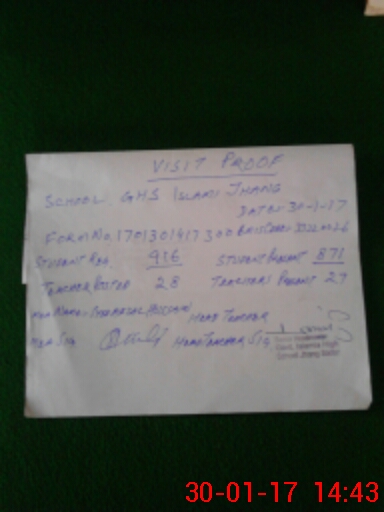 VISIT PROOF
SCHOOL GHS ISLAMI JHANG
DATE: 30-1-17
FORM NO. 1701301417300
STUDENT REG. 916 STUDENT PRESENT 871
TEACHER POSTED 28 TEACHERS PRESENT 27
HEAD TEACHER
MEA SIG HEAD TEACHER SIG
30-01-17 14:43